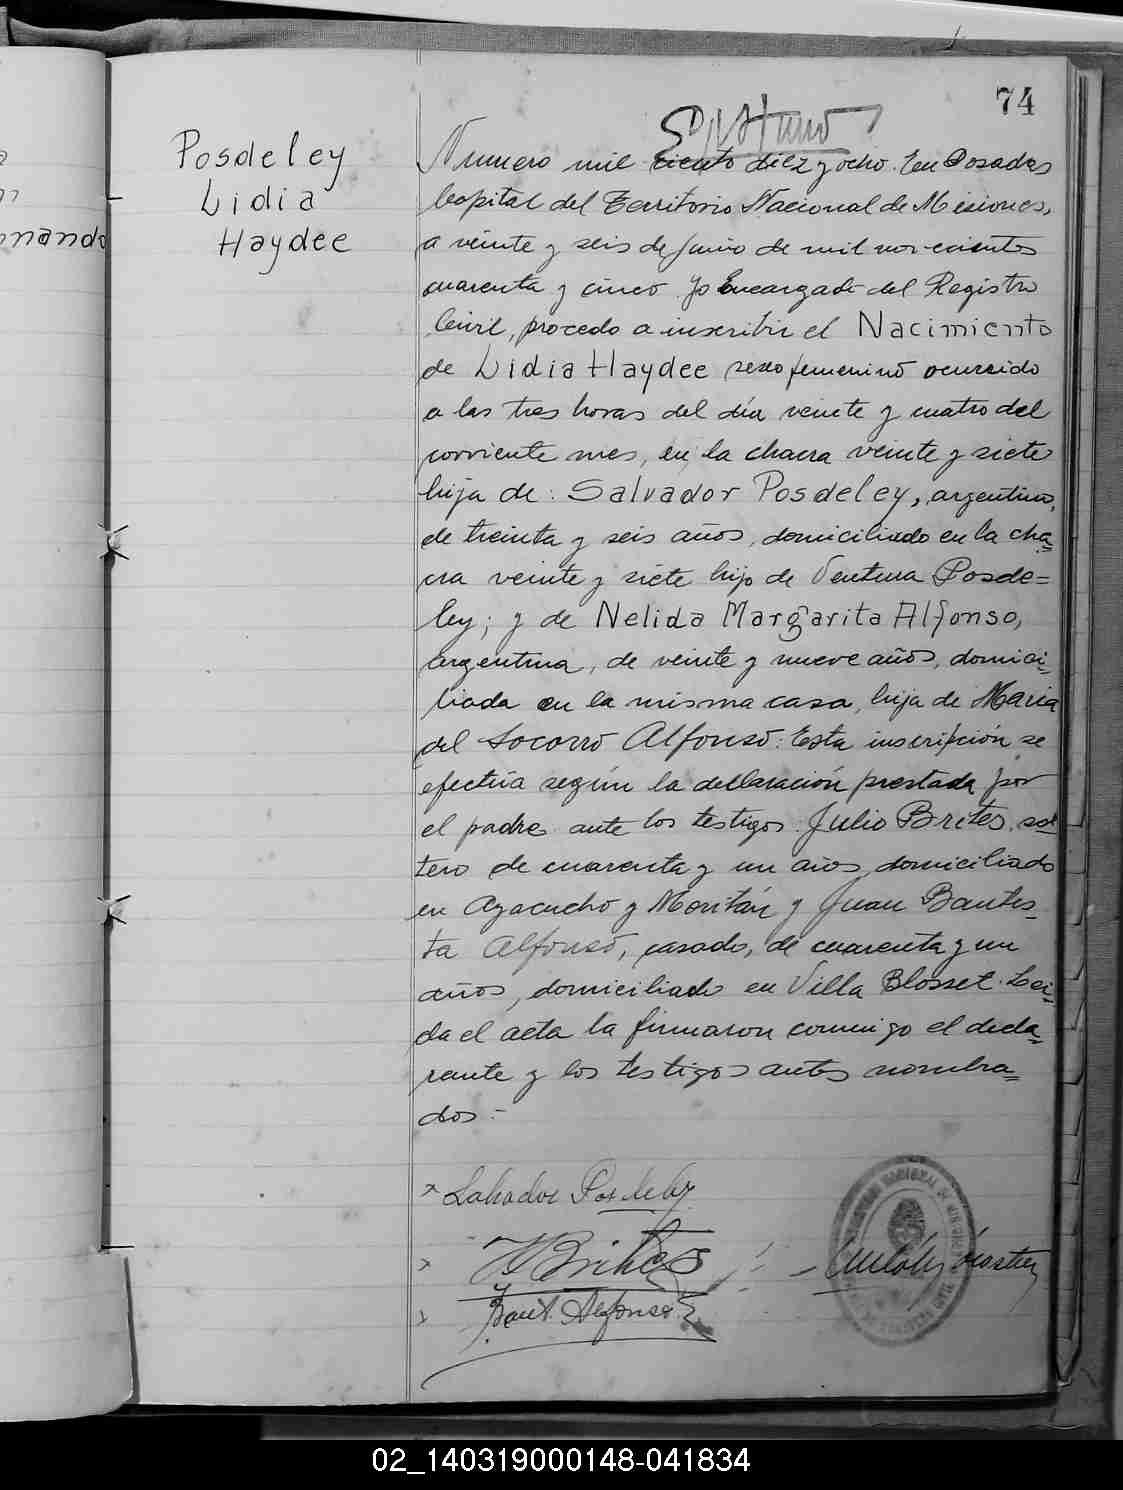 74
Posdeley
Lidia
Haydee
Numero mil ciento diez y ocho. En Posadas
Capital del Territorio Nacional de Misiones,
a veinte y seis de Junio de mil novecientos
cuarenta y cinco yo Encargado del Registro
Civil, procedo a inscribir el Nacimiento
de Lidia Haydee sexo femenino ocurrido
a las tres horas del día veinte y cuatro del
corriente mes, en la chacra veinte y siete
hija de: Salvador Posdeley, argentino,
de treinta y seis años, domiciliado en la cha=
cra veinte y siete hijo de Ventura Posde=
ley; y de Nelida Margarita Alfonso,
argentina, de veinte y nueve años, domici=
liada en la misma casa, hija de Maria
del Socorro Alfonso: Esta inscripción se
efectúa según la declaración prestada por
el padre ante los testigos: Julio Brites, sol=
tero de cuarenta y un años, domiciliado
en Ayacucho y y Juan Bautis=
ta Alfonso, casado, de cuarenta y un
años, domiciliado en Villa Blosset. Lei=
da el acta la firmaron conmigo el decla=
rante y los testigos antes nombra=
dos.-
x Salvador Posdeley
x J Brites
x Baut. Alfonso
02_140319000148-041834